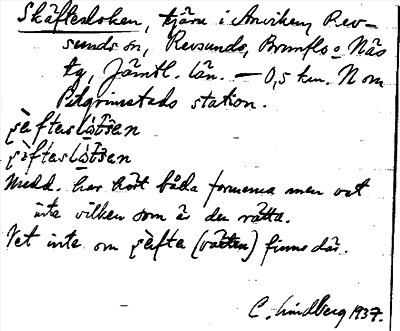 Skäftesloken, tjärn i Anviken, Rev-
sunds sn, Revsunds, Brunflo o Näs
tg, Jämtl. län. – 0,5 km. N om
Pilgrimstads station.
Medd. har hört båda formerna men vet
inte vilken som är den rätta.
Vet inte om (växten) finns där.
C. Lindberg 1937.